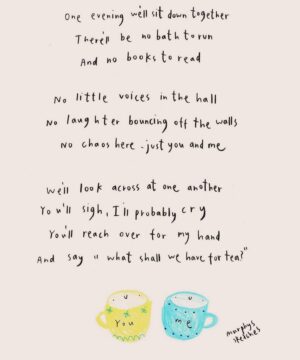 One evening we'll sit down together
There'll be no bath to run
And no books to read
No little voices in the hall
No laughter bouncing off the walls
No chaos here - just you and me
We'll look across at one another
You'll sigh, I'll probably cry
You'll reach over for my hand
And say "what shall we have for tea?"
You
me
murphys
sketches